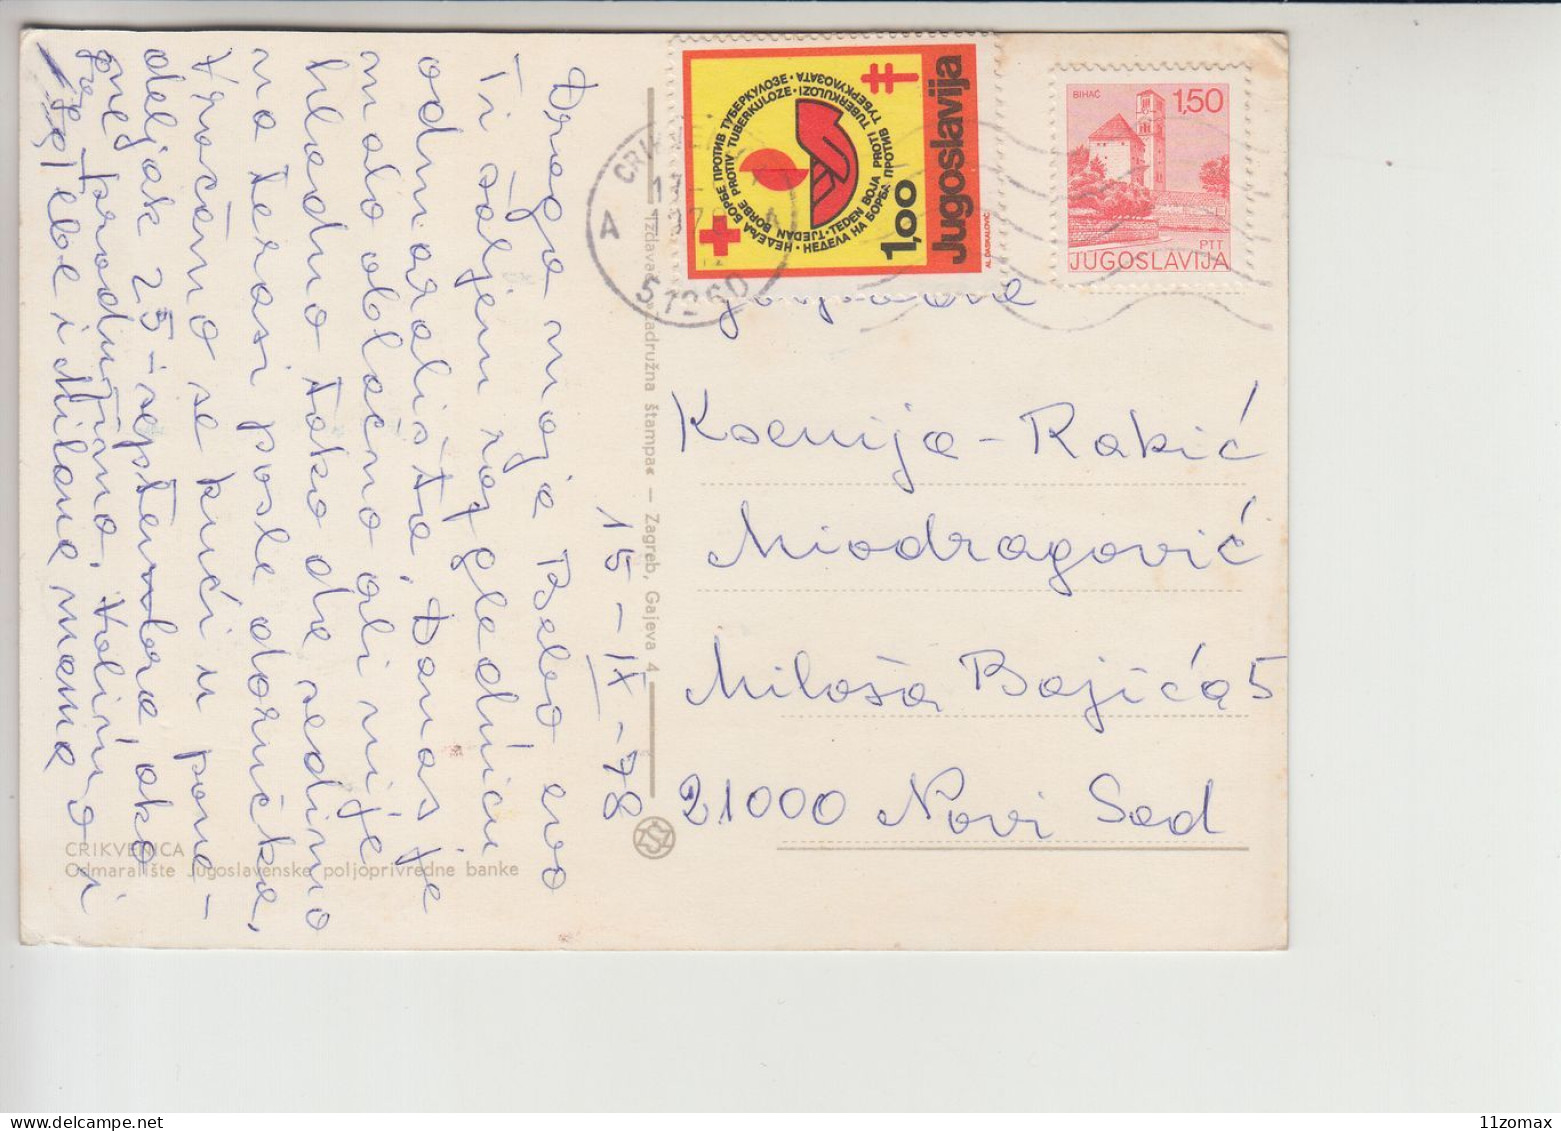 15-IX-78
Draga moja Beba evo
Ti šaljem razglednicu
odmarališta. Danas je
malo oblačno ali nije
hladno tako da sedimo
na terasi posle doručka.
Vraćamo se kući u pone-
deljak 25-septembra, ako
ne produžimo. Volimo i
Tebe i Milana mama
CRIKVENICA
Odmaralište Jugoslavenske poljoprivredne banke
Izdavač zadružna štampa« – Zagreb, Gajeva 4
51260
A
A
Jugoslavija
1,00
NEDELJA
НЕДЕЉА БОРБЕ ПРОТИВ ТУБЕРКУЛОЗЕ
TJEDAN BORBE PROTIV TUBERKULOZE
TEDEN BOJA PROTI TUBERKULOZI
НЕДЕЛА НА БОРБА ПРОТИВ ТУБЕРКУЛОЗАТА
AL. DASKALOVIĆ
BIHAĆ
1,50
PTT
JUGOSLAVIJA
Ksenija-Rakić
Miodragović
Miloša Bajića 5
21000 Novi Sad
11zomax